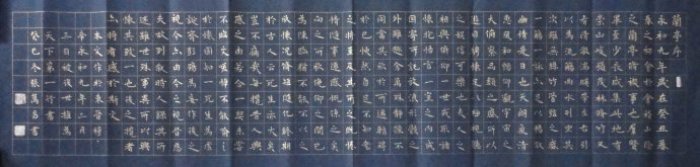 蘭亭序
永和九年歲在癸丑暮
春之初會于會稽山陰
之蘭亭脩禊事也羣賢
畢至少長咸集此地有
崇山峻領茂林脩竹又
有清流激湍映帶左右引
以為流觴曲水列坐其
次雖無絲竹管弦之盛
一觴一詠亦足以暢敘
幽情是日也天朗氣清
惠風和暢仰觀宇宙之
大俯察品類之盛所以
遊目騁懷足以極視聽
之娛信可樂也夫人之
相與俯仰一世或取諸
懷抱悟言一室之內或
因寄所託放浪形骸之
外雖趣舍萬殊靜躁不
同當其欣於所遇暫得
於己快然自足不知老
之將至及其所之既惓
情隨事遷感慨係之矣
向之所欣俛仰之間已
為陳迹猶不能不以之
興懷況脩短隨化終期
於盡古人云死生亦大矣
豈不痛哉每攬昔人興
感之由若合一契未嘗
不臨文嗟悼不能喻之
於懷固知一死生為虛
誕齊彭殤為妄作後之
視今亦由今之視昔悲
夫故列敘時人錄其所
述雖世殊事異所以興
懷其致一也後之攬者
亦將有感於斯文
本文作於東晉穆
帝永和九年三月
後世推為
天下第一行書
癸巳冬張萬書